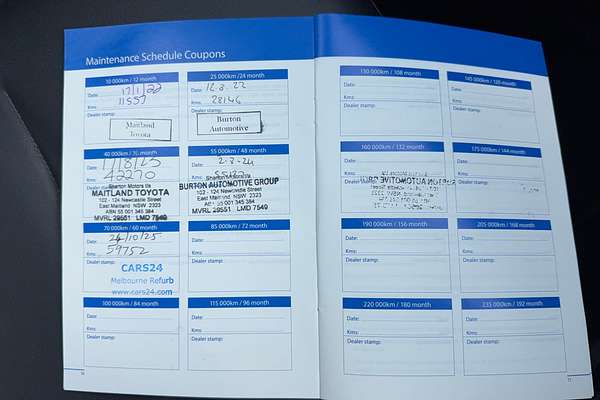 Maintenance Schedule Coupons
10 000km / 12 month
Date: 17/1/22
Kms: 11557
Dealer stamp:
Maitland
Toyota
25 000km / 24 month
Date: 12.8.22
Kms: 28146
Dealer stamp:
Burton
Automotive
40 000km / 36 month
Date: 1/8/23
Kms: 42270
Sharton Motors t/a
MAITLAND TOYOTA
102 - 124 Newcastle Street
East Maitland NSW 2323
ABN 55 001 345 384
MVRL 29551 LMD 7549
55 000km / 48 month
Date: 2-8-24
Kms:
Sharton Motors t/a
BURTON AUTOMOTIVE GROUP
102 - 124 Newcastle Street
East Maitland NSW 2323
ABN 55 001 345 384
MVRL 29551 LMD 7549
70 000km / 60 month
Date: 24/10/25
Kms: 59752
Dealer stamp:
CARS24
Melbourne Refurb
www.cars24.com
85 000km / 72 month
Date:
Kms:
Dealer stamp:
100 000km / 84 month
Date:
Kms:
Dealer stamp:
115 000km / 96 month
Date:
Kms:
Dealer stamp:
130 000km / 108 month
Date:
Kms:
Dealer stamp:
145 000km / 120 month
Date:
Kms:
Dealer stamp:
160 000km / 132 month
Date:
Kms:
Dealer stamp:
175 000km / 144 month
Date:
Kms:
Dealer stamp:
190 000km / 156 month
Date:
Kms:
Dealer stamp:
205 000km / 168 month
Date:
Kms:
Dealer stamp:
220 000km / 180 month
Date:
Kms:
Dealer stamp:
235 000km / 192 month
Date:
Kms:
Dealer stamp: